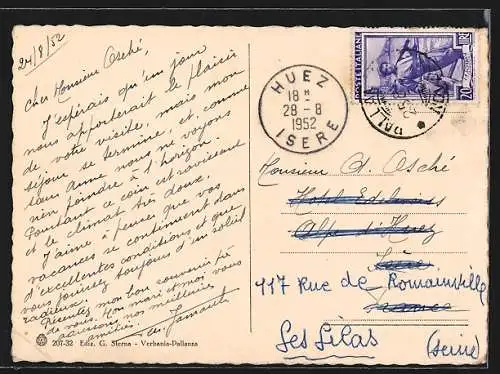 24/8/52
Cher Monsieur Osché,
J'espérais qu'un jour
nous apporterait le plaisir
de votre visite, mais mon
séjour se termine, et, comme
sœur Anne nous ne voyons
rien poindre à l'horizon.
Pourtant ce coin est ravissant
et le climat très doux.
J'aime à penser que vos
vacances se continuent dans
d'excellentes conditions et que
vous jouissez toujours d'un soleil
radieux.
Présentez mon bon souvenir
de vous. Mon mari et moi vous
adressons nos meilleures
amitiés.
207-32 Ediz. G. Sterna - Verbania-Pallanza
HUEZ
18 H
28-8
1952
ISERE
POSTE ITALIANE
L. 20
PALLANZA
Monsieur A. Osché
Hotel
Alpe d'Huez
Isère
France
117 Rue de Romainville
Les Lilas
(Seine)